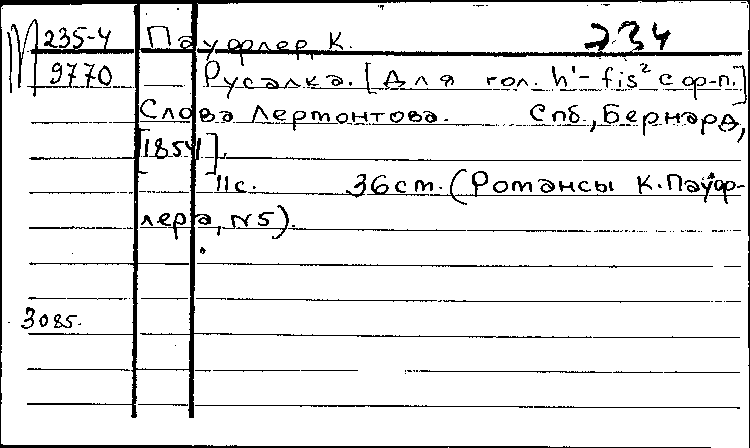 М 235-4 Пауфлер, К. 234
9770 Русалка. [Для гол. h'- fis² с ф-п.]
Слова Лермонтова. Спб., Бернард,
[1854].
11с. 36см. (Романсы К. Пауф-
лера, N5).
3085.